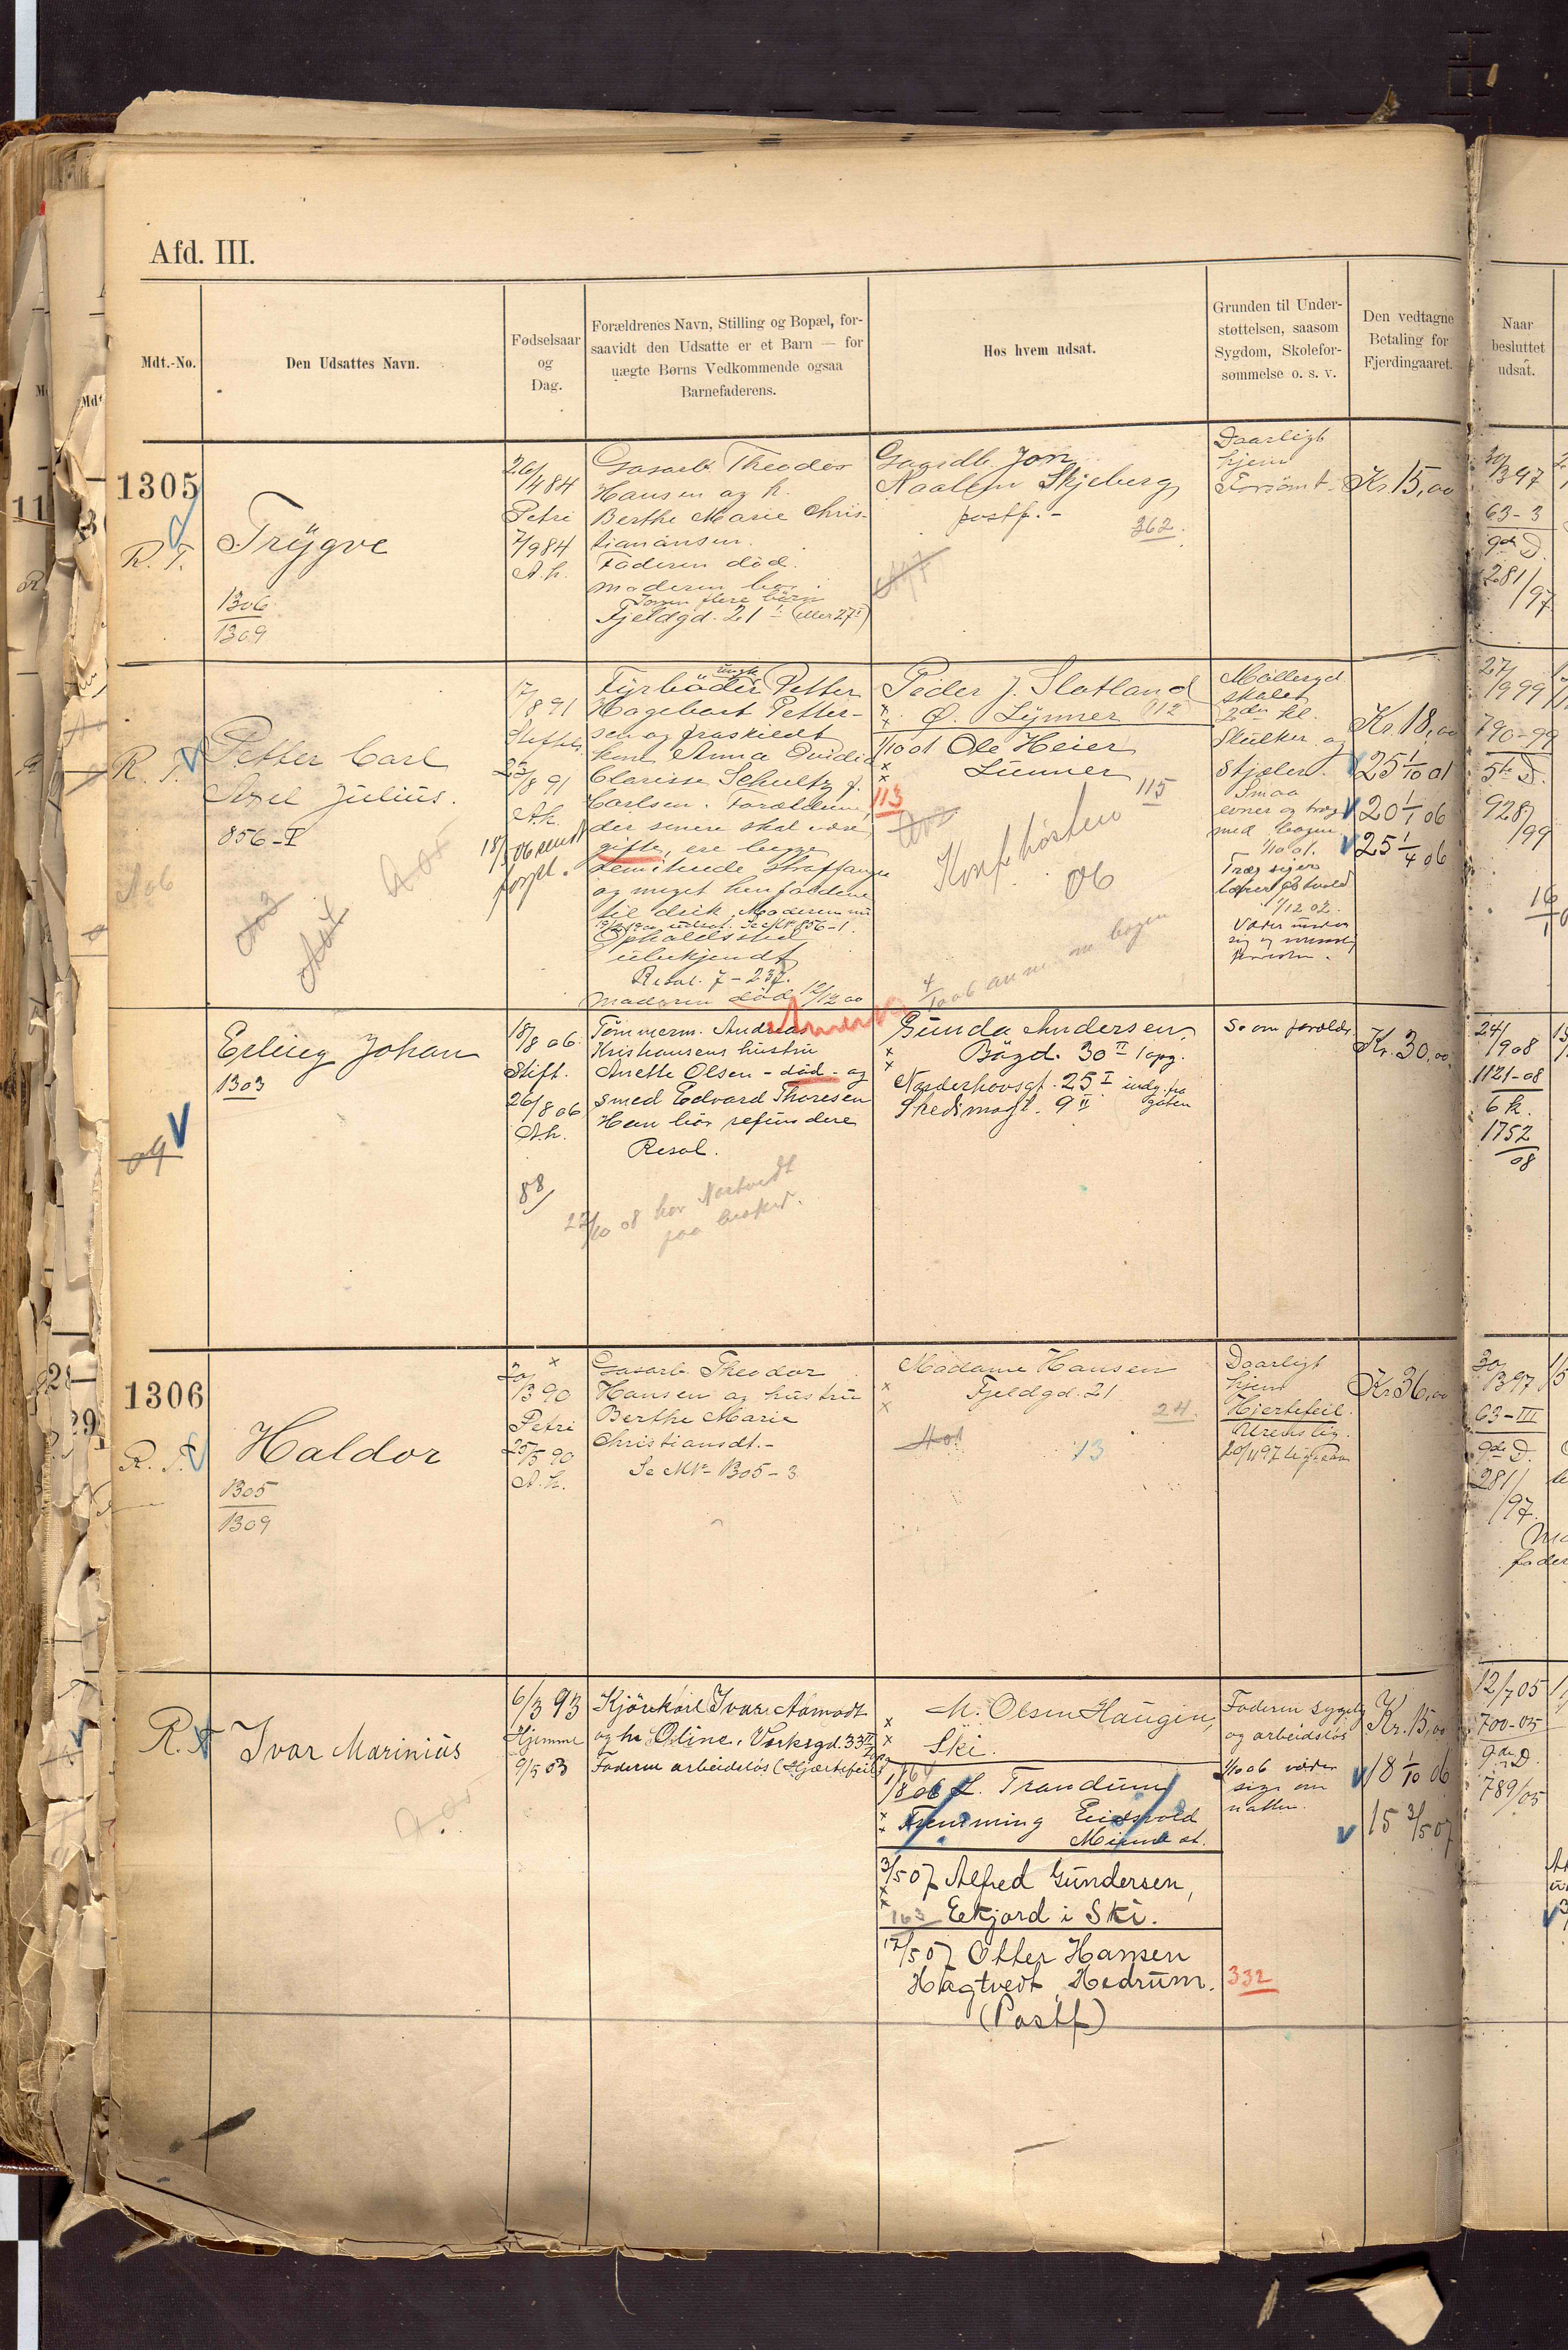 Afd. III.
Mdt.-No.
Den Udsattes Navn.
Fødselsaar
og
Dag.
Forældrenes Navn, Stilling og Bopæl, for-
saavidt den Udsatte er et Barn — for
uægte Børns Vedkommende ogsaa
Barnefaderens.
Hos hvem udsat.
Grunden til Under-
støttelsen, saasom
Sygdom, Skolefor-
sømmelse o. s. v.
Den vedtagne
Betaling for
Fjerdingaaret.
Naar
besluttet
udsat.
1305
R. T.
Trygve
1306
1309
26/4 84
Petri
7/9 84
A.h.
Gasarb. Theodor
Hansen og h.
Berthe Marie Chris-
tiansen.
Faderen död.
moderen bor
Fjeldgd. 21 I (eller 27 I)
Gaardb. Jon
Naalem Skjeberg
postf. -
362.
Daarligt
hjem
Forsömt
Kr. 15,00
30/3 97
63-3
9de D.
281/97
R. T.
Petter Carl
Axel Julius.
856-I
A06
17/8 91
23/8 91
A.h.
18/ 06 sendt
foræl.
Fyrböder Petter
Hagebart Petter-
sen og fraskildt
kone Anna Ovidia
Clarisse Schultz f.
Carlsen. Forældrene,
der senere skal være
gifte, ere begge
demitterede straffanger
og meget henfaldene
til drik. Moderen nu
Opholdssted
ubekjendt
Resol. 7-237.
Moderen död 12/12 00
Peder J. Slotland
Ø. Lynner 112
1/10 01 Ole Heier
Lunner
115
113
Konf. hösten
06
Möllergd
skoles
2den kl.
Skulker og
Stjæler.
Smaa
evner og træg
med bogen
1/10 01.
1/12 02.
Kr. 18,00
25 1/10 01
20 1/1 06
25 1/4 06
27/9 99
790-99
5te D.
928/99
Erling Johan
1303
09
18/8 06.
Stift.
26/8 06
A.h.
88/
Tömmerm. Andreas
Kristiansens hustru
Anette Olsen - död - og
smed Edvard Thoresen
Han bör refundere
Resol.
22/10 08 hos Nortvedt
paa besked.
Gunda Andersen,
Bögd. 30 II 1 opg.
Norderhovsgt. 25 I indg. fra
gaten
Skedsmogt. 9 II
Se om foreldr.
Kr. 30,00
24/9 08
1121-08
6 k.
1752
08
1306
R. T.
Haldor
1305
1309
20/3 90
Petri
25/5 90
A.h.
Gasarb. Theodor
Hansen og hustru
Berthe Marie
Christiansdt.-
Se Mt 1305-3.
Madame Hansen
Fjeldgd. 21
24.
13
Daarligt
hjem
Hjertefeil.
Kr. 36,00
30/3 97
63-III
9de D.
281/
/97.
R. T
Ivar Marinius
6/3 93
Hjemme
9/5 03
Kjörekarl Ivar Aamodt
og h. Oline, Vorksgd. 33 II
Faderen arbeidslös (Hjertefeil)
M. Olsen Haugen,
Ski.
1/8 06 L. Trandum
Flemming Eidsvold
Minne st.
3/5 07 Alfred Gundersen,
163 Eekjord i Ski.
17/5 07 Otter Hansen
Hagtvedt, Hedrum.
(Postf)
332
Faderen sygelig
og arbeidslös
1/10 06 væder
sig om
natten.
Kr. 15,00
18 1/10 06
15 3/5 07
12/7 05
700-05
9de D.
789/05